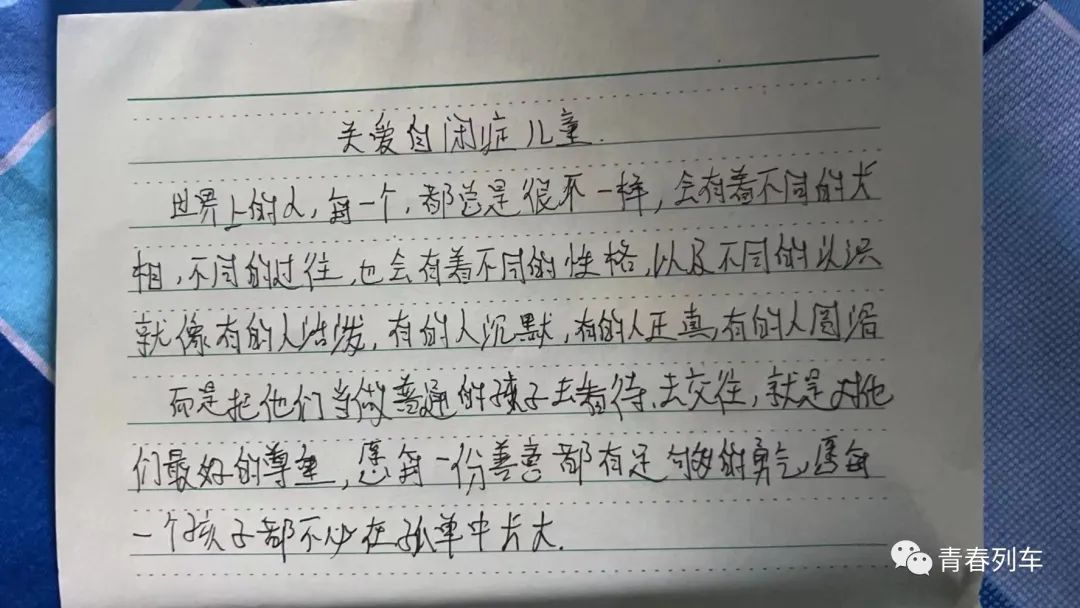 关爱自闭症儿童.
世界上的人,每一个,都总是很不一样,会有着不同的长
相,不同的过往,也会有着不同的性格,以及不同的认识
就像有的人活泼,有的人沉默,有的人正直,有的人圆滑
而是把他们当做普通的孩子去看待、去交往,就是对他
们最好的尊重,愿每一份善意都有足够的勇气,愿每
一个孩子都不必在孤单中长大.
青春列车